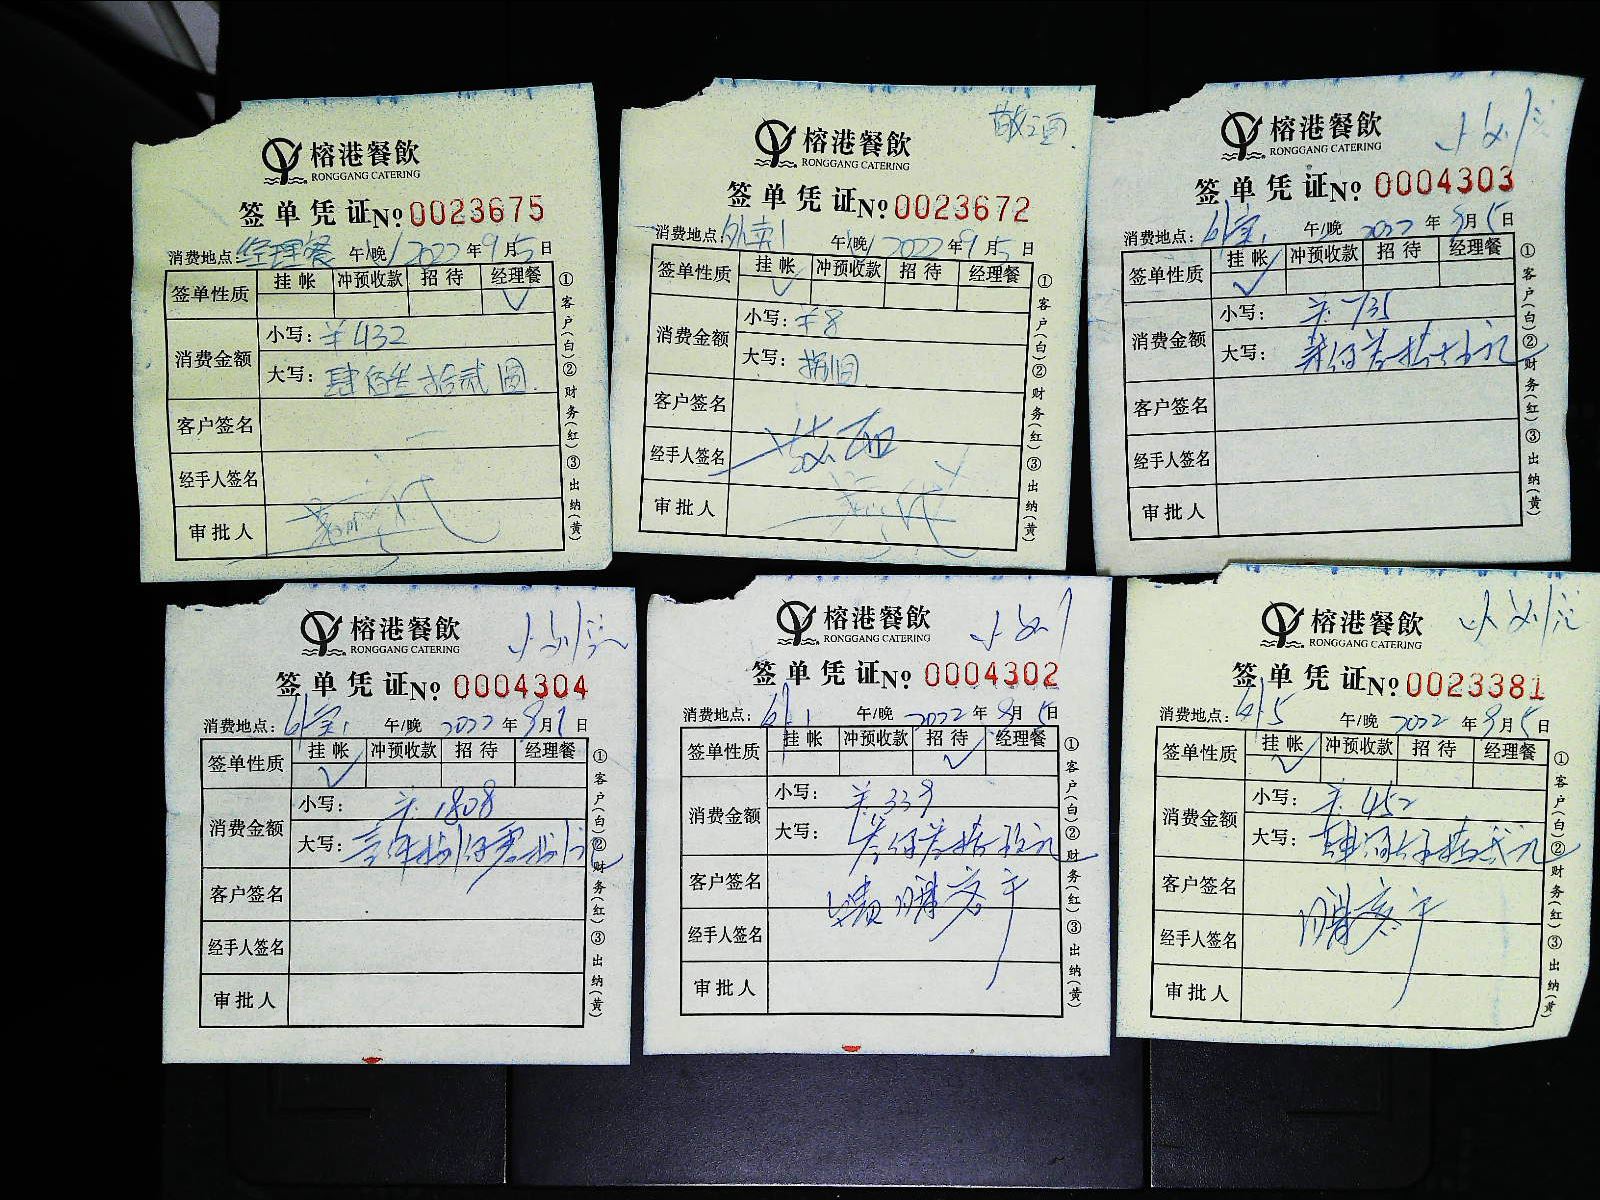 榕港餐飲
RONGGANG CATERING
签单凭证 No 0023675
消费地点:经理餐 午/晚 2022年9月5日
签单性质 挂帐 冲预收款 招待 经理餐 ✓
消费金额 小写:¥432
大写:肆佰叁拾贰圆
客户签名
经手人签名
审批人
①客户(白)②财务(红)③出纳(黄)
敬西
榕港餐飲
RONGGANG CATERING
签单凭证 No 0023672
消费地点:外卖1 午/晚 2022年9月5日
签单性质 挂帐 ✓ 冲预收款 招待 经理餐
消费金额 小写:¥8
大写:捌圆
客户签名
经手人签名
审批人
①客户(白)②财务(红)③出纳(黄)
榕港餐飲
RONGGANG CATERING
签单凭证 No 0004303
消费地点: 午/晚 2022年9月5日
签单性质 挂帐 ✓ 冲预收款 招待 经理餐
消费金额 小写:¥735
大写:柒佰叁拾伍元
客户签名
经手人签名
审批人
①客户(白)②财务(红)③出纳(黄)
榕港餐飲
RONGGANG CATERING
签单凭证 No 0004304
消费地点: 午/晚 2022年9月 日
签单性质 挂帐 ✓ 冲预收款 招待 经理餐
消费金额 小写:¥1808
大写:
客户签名
经手人签名
审批人
①客户(白)②财务(红)③出纳(黄)
榕港餐飲
RONGGANG CATERING
签单凭证 No 0004302
消费地点: 午/晚 2022年9月5日
签单性质 挂帐 冲预收款 招待 ✓ 经理餐
消费金额 小写:¥339
大写:叁佰叁拾玖元
客户签名
经手人签名
审批人
①客户(白)②财务(红)③出纳(黄)
榕港餐飲
RONGGANG CATERING
签单凭证 No 0023381
消费地点: 午/晚 2022年9月5日
签单性质 挂帐 ✓ 冲预收款 招待 经理餐
消费金额 小写:¥452
大写:肆佰伍拾贰元
客户签名
经手人签名
审批人
①客户(白)②财务(红)③出纳(黄)